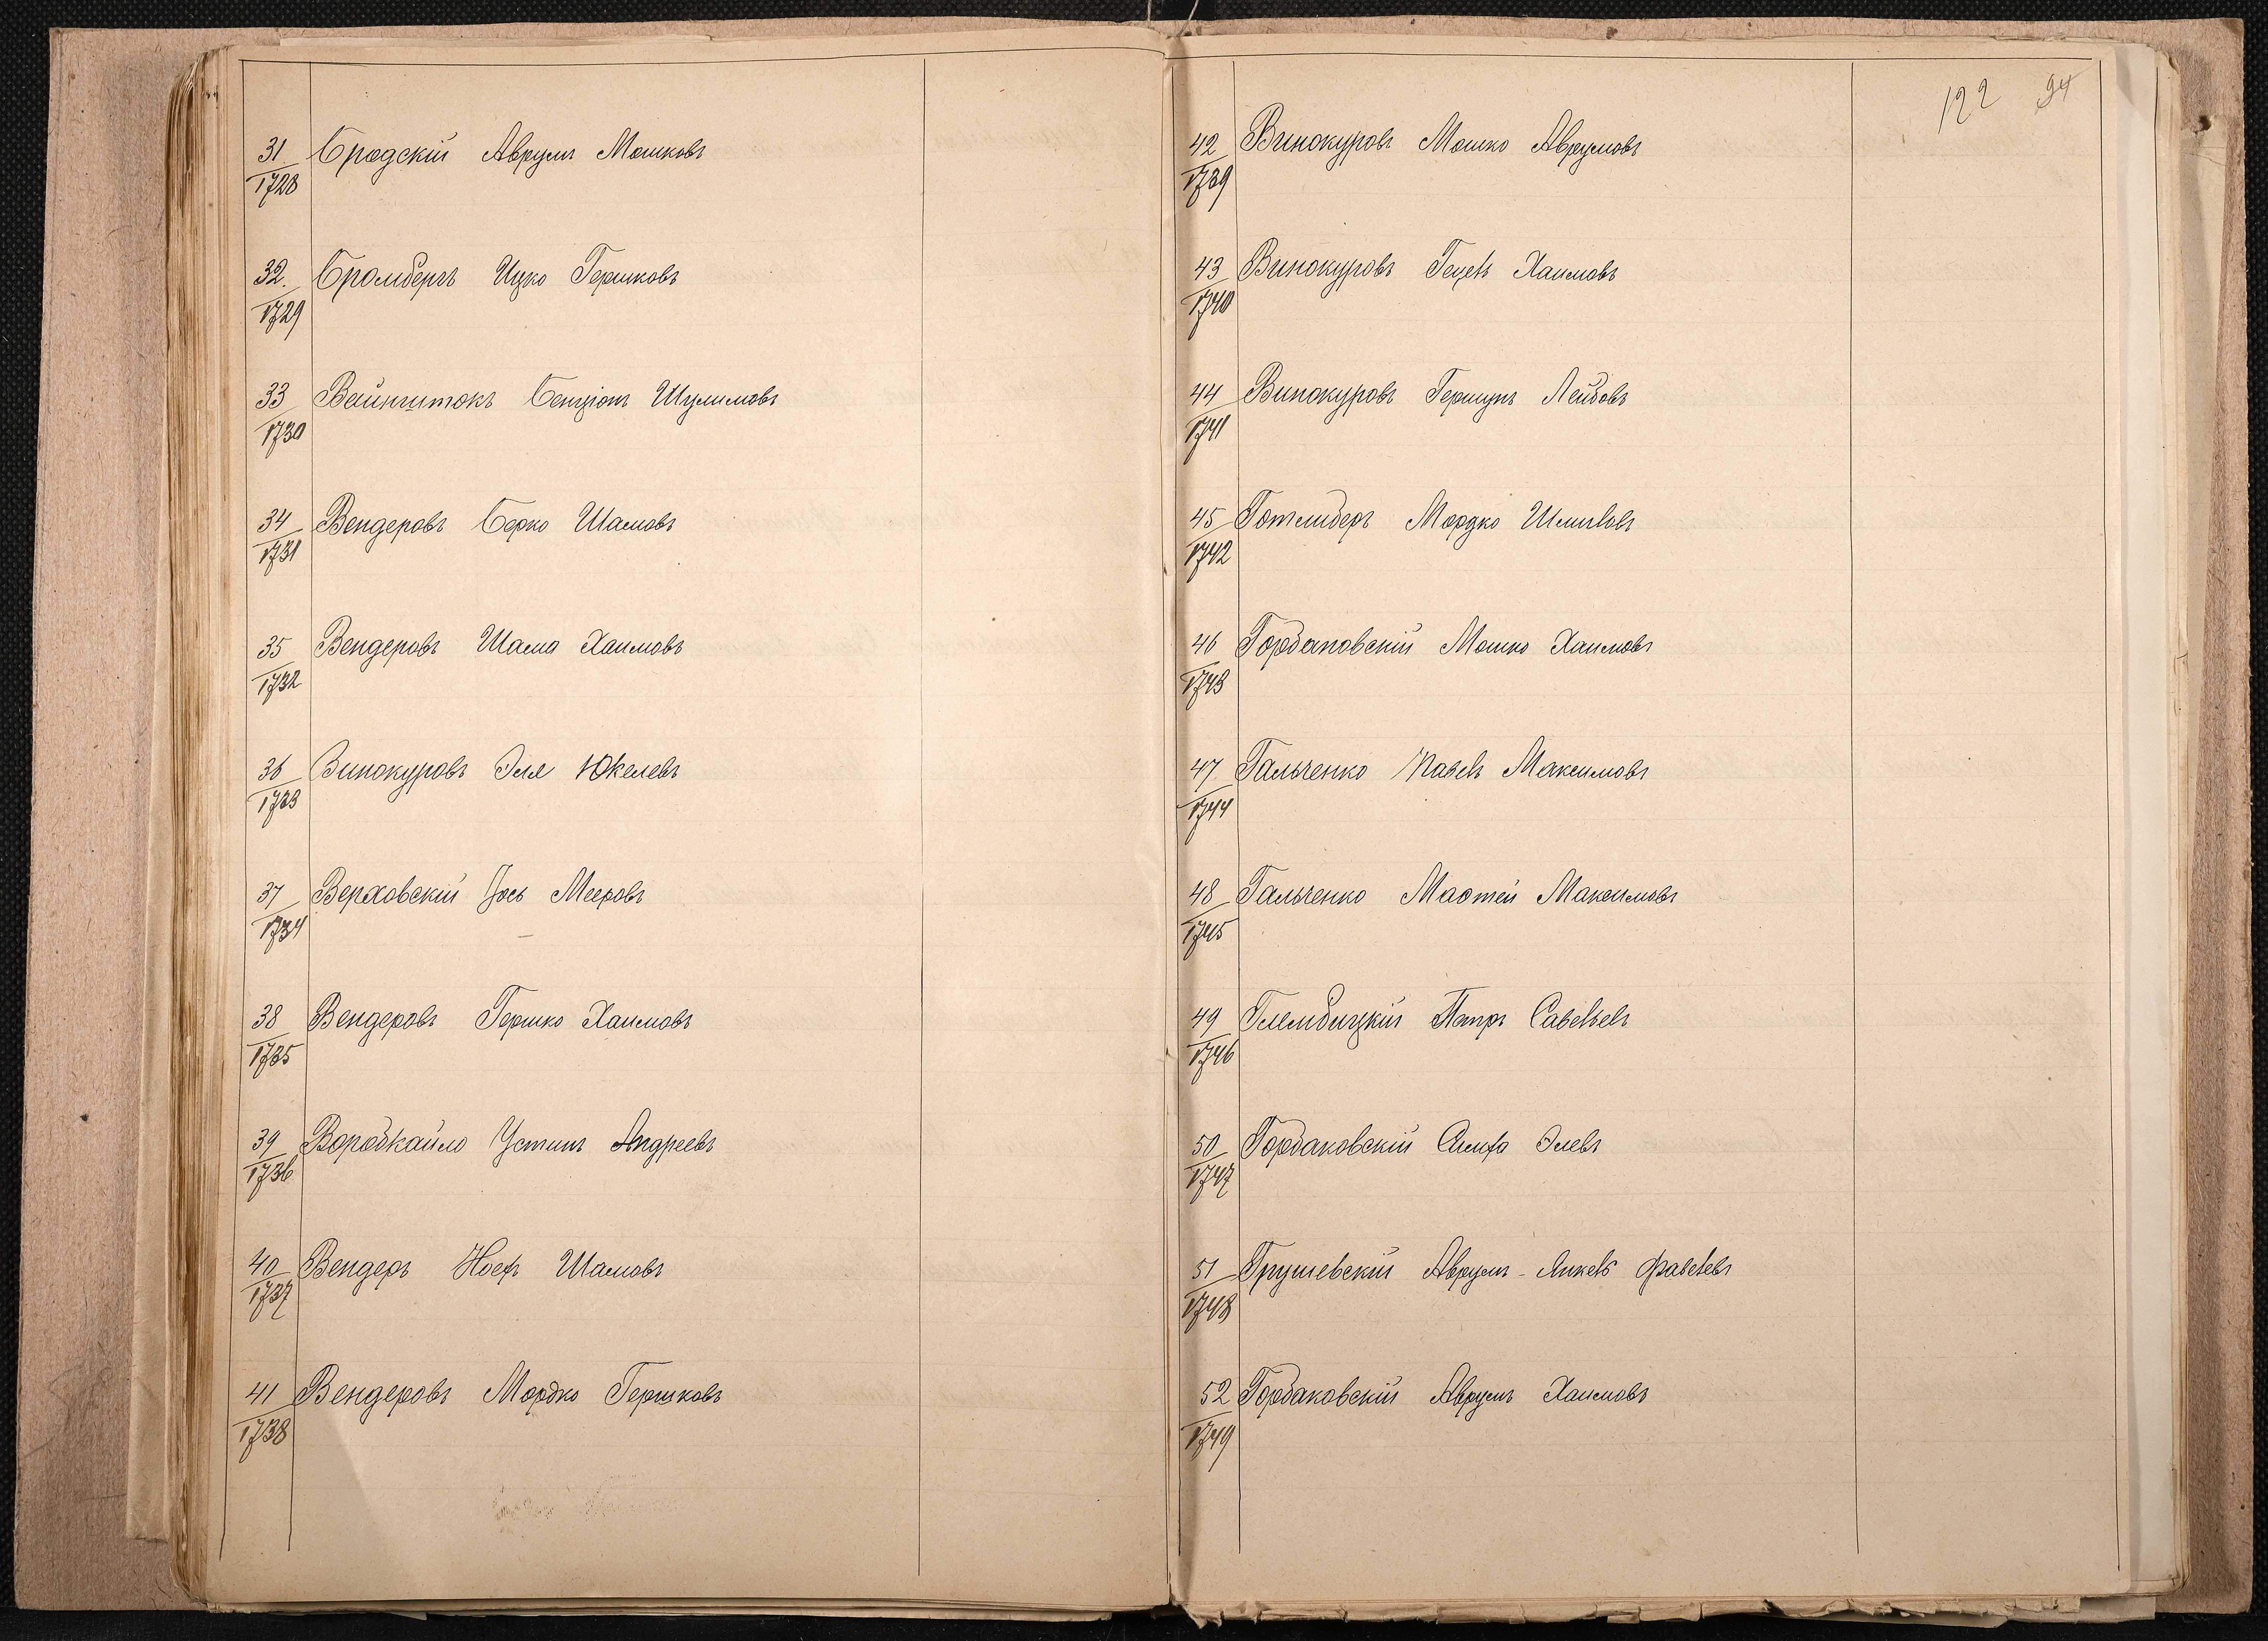 31 Бродскій Аврумъ Мошковъ
1728
32. Бромбергъ Ицко Гершковъ
1729
33 Вайнштокъ Бенціонъ Шулимовъ
1730
34 Вендеровъ Берко Шамовъ
1731
35 Вендеровъ Шама Хаимовъ
1732
36 Винокуровъ Эля Юкелевъ
1733
37 Верховскій Іось Мееровъ
1734
38 Вендеровъ Гершко Хаимовъ
1735
39 Воробкайло Устинъ Андреевъ
1736
40 Вендеръ Шамовъ
1737
41 Вендеровъ Мордко Гершковъ
1738
122 94
42 Винокуровъ Мошко Аврумовъ
1739
43 Винокуровъ Гецель Хаимовъ
1740
44 Винокуровъ Гершунъ Лейбовъ
1741
45 Готлиберъ Мордко
1742
46 Горбаковскій Мошко Хаимовъ
1743
47 Гальченко Павелъ Максимовъ
1744
48 Гальченко Маѳтей Максимовъ
1745
49 Глембицкій Петръ Савельевъ
1746
50 Горбаковскій Симха Элевъ
1747
51 Грушевскій Аврумъ-Янкель Фавелевъ
1748
52 Горбаковскій Аврумъ Хаимовъ
1749